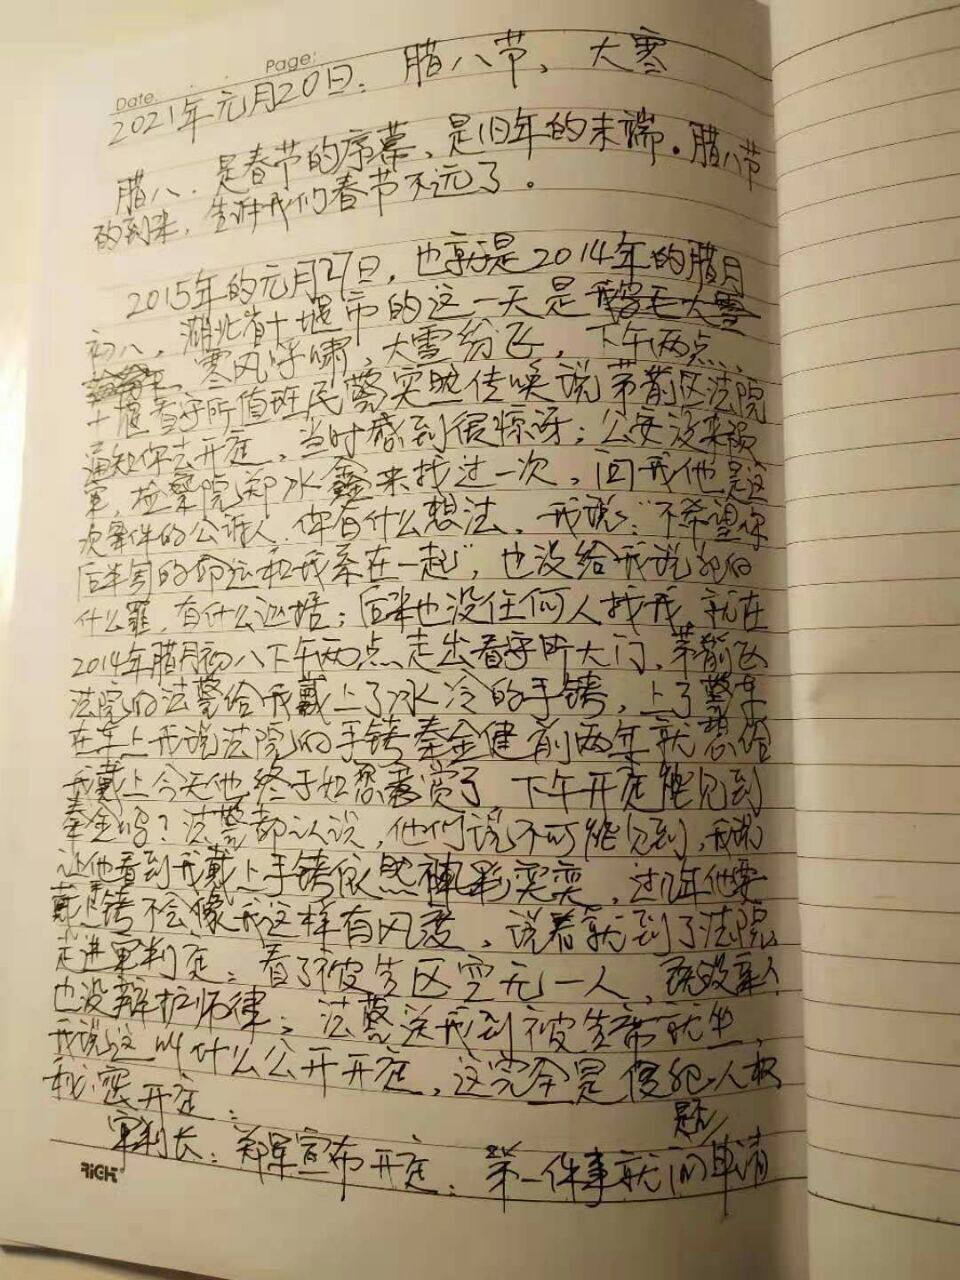 Date.
Page:
2021年元月20日. 腊八节、大寒
腊八.是春节的序幕、是旧年的末端。腊八节
的到来,告诉我们春节不远了。
2015年的元月27日,也就是2014年的腊月
初八,湖北省十堰市的这一天是
寒风呼啸,大雪纷飞,下午两点
十堰看守所值班民警突然传唤说茅箭区法院
通知你去开庭,当时感到很惊讶;公安没来
检察院郑冰鑫来找过一次,问我他是这
次案件的公诉人.你有什么想法,我说:"不希望你
后半生的命运和我系在一起",也没给我说犯的
什么罪,有什么证据;后来也没任何人找我,就在
2014年腊月初八下午两点走出看守所大门,茅箭区
法院的法警给我戴上了冰冷的手铐,上了警车
在车上我说法院的手铐秦金健前两年就想给
我戴上今天他终于如愿 了 下午开庭能见到
秦金 吗?法警都认识,他们说不可能见到,我说
让他看到我戴上手铐依然神彩奕奕,过几年他要
戴上铐不会像我这样有风度,说着就到了法院
走进审判庭;看了被告区空无一人,
也没辩护师律;法警送我到被告席就坐,
我说这叫什么公开开庭,这完全是侵犯人权
秘密开庭;
审判长:郑军宣布开庭;第一件事就问申请
RiCH